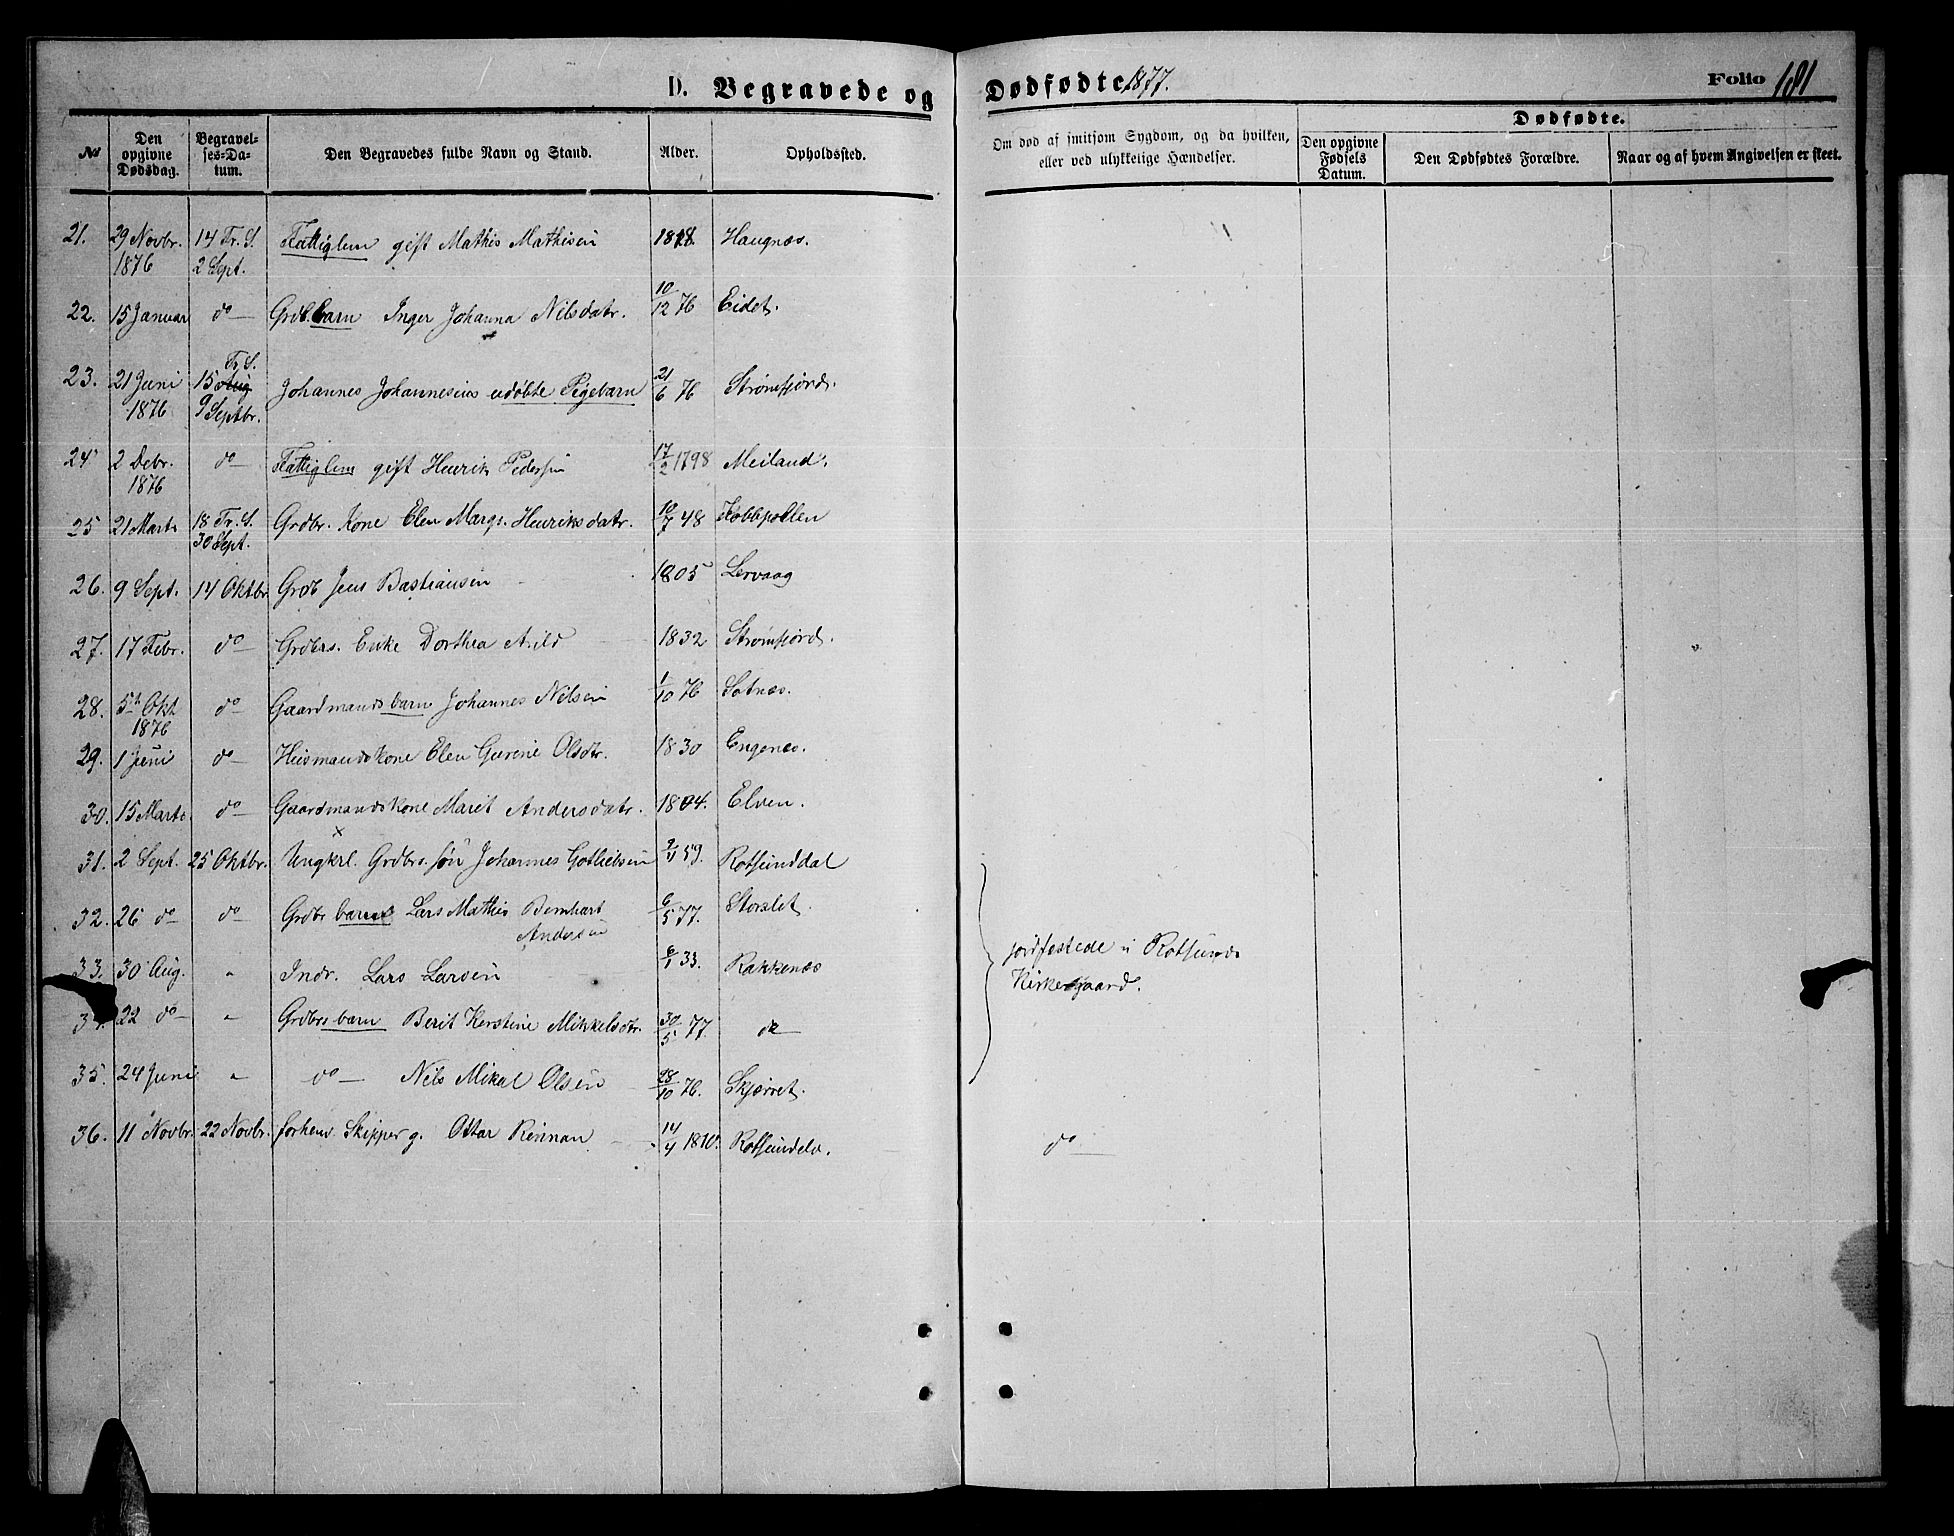 D. Begravede og Dødfødte 1877. Folio 181
No
Den opgivne Dødsdag.
Begravel-ses-Da-tum.
Den Begravedes fulde Navn og Stand.
Alder.
Opholdssted.
Om død af smitsom Sygdom, og da hvilken, eller ved ulykkelige Hændelser.
Dødfødte.
Den opgivne Fødsels Datum.
Den Dødfødtes Forældre.
Naar og af hvem Angivelsen er skeet.
21. 29 Novbr. 14 Tr. S. Fattiglem gift Mathis Mathisen 1818. Haugnæs.
1876 2 Sept.
22. 15 Januar do Grdb. barn Inger Johanna Nilsdatr. 10/12 76 Eidet.
23. 21 Juni 15 Aug Tr. S. Johannes Johannesens udøbte Pigebarn 21/6 76 Strømfjord.
1876 9 Septbr.
24 2 Debr. do Fattiglem gift Henrik Pedersen 17/2 1798 Meiland.
1876
25 21 Marts 18 Tr. S. Grdbr. Kone Elen Margr. Henriksdatr. 10/7 48 Kobbpollen
30 Sept.
26. 9 Sept. 14 Oktbr. Grdb Jens Bastiansen 1805 Lervaag
27. 17 Febr. do Grdbrs. Enke Dorthea Arild 1832 Strømfjord.
28. 5 Okt do Gaardmandsbarn Johannes Nilsen 1/10 76 Sotnæs.
1876
29. 1 Juni do Husmandskone Elen Gurine Olsdtr. 1830 Engenæs.
30. 15 Marts do Gaardmandskone Marit Andersdatr. 1804. Elven.
31. 2 Sept. 25 Oktbr. Ungkrl. Grdbrs. søn Johannes Gotliebsen 2/1 59. Rotsunddal
32. 26 do do Grdbr barn Lars Mathis Bernhart 6/5 77. Storslet
Andersen
33. 30 Aug. " Indr. Lars Larsen 6/1 33. Rakkenæs
jordfæstede i Rotsunds
Kirkegaard.
34. 22 do " Grdbrs barn Berit Kerstine Mikkelsdtr. 30/5 77. do
35. 24 Juni " do Nils Mikal Olsen 28/10 76. Skjærvet.
36. 11 Novbr. 22 Novbr. forhenv. Skipper g. Ottar Rinnan 14/4 1810. Rotsundelv. do